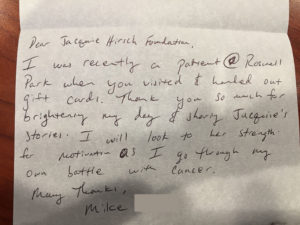 Dear Jacquie Hirsch Foundation,
I was recently a patient @ Roswell
Park when you visited & handed out
gift cards. Thank you so much for
brightening my day & sharing Jacquie's
stories. I will look to her strength
for motivation as I go through my
own battle with cancer.
Many Thanks,
Mike